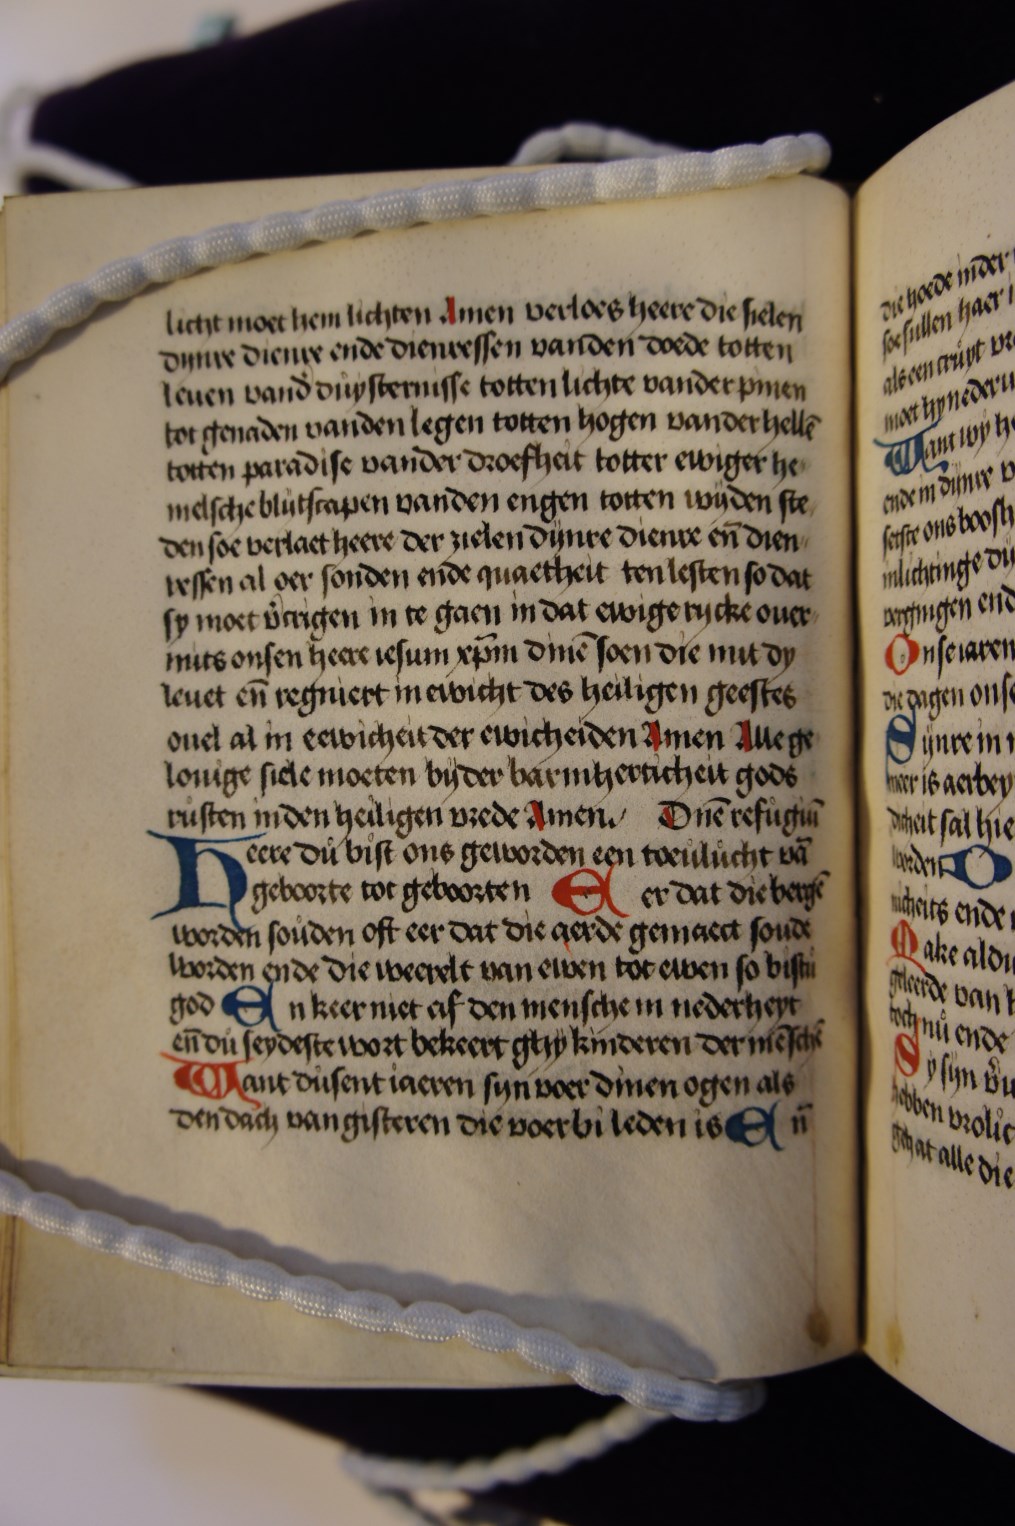 licht moet hem lichten Amen verloes heere die sielen
dynre dienre ende dienressen vanden doede totten
leuen vand̉ duysternisse totten lichte vander pinen
tot genaden vanden legen totten hogen vander hellē
totten paradise vander droefheit totter ewiger he
melsche blutscapen vanden engen totten wyden ste
den soe verlaet heere der zielen dynre dienre en̄ dien
ressen al oer sonden ende quaetheit ten lesten so dat
sy moet v̉crigen in te gaen in dat ewige rycke ouer
mits onsen heere iesum xp̄m dinē soen die mit dy
leuet en̄ regniert in ewicht des heiligen geestes
ouel al in eewicheit der ewicheiden Amen Alle ge
louige siele moeten byder barmherticheit gods
rusten inden heiligen vrede Amen. Dn̄e refugiū
Heere du bist ons geworden een toeulucht vā
geboorte tot geboorten Eer dat die bergē
worden souden oft eer dat die aerde gemaect soude
worden ende die weerelt van ewen tot ewen so bistu
god En keer niet af den mensche in nederheyt
en̄ du seydeste wort bekeert ghy kinderen der mēschē
Want dusent iaeren syn voer dinen ogen als
den dach van gisteren die voerbi leden is En̄
die hoede inder
soe sullen haer
als een cruyt
moet hy neder
Want wy
ende in dynre
setste ons boosh
inlichtinge
ende
Onse iaren
die dagen onse
Synre in
meer is aerbey
dicheit sal hie
worden O
nicheits ende
ake aldu
geleerde van
toch nu ende
Sy syn
hebben vrolic
gehat alle die